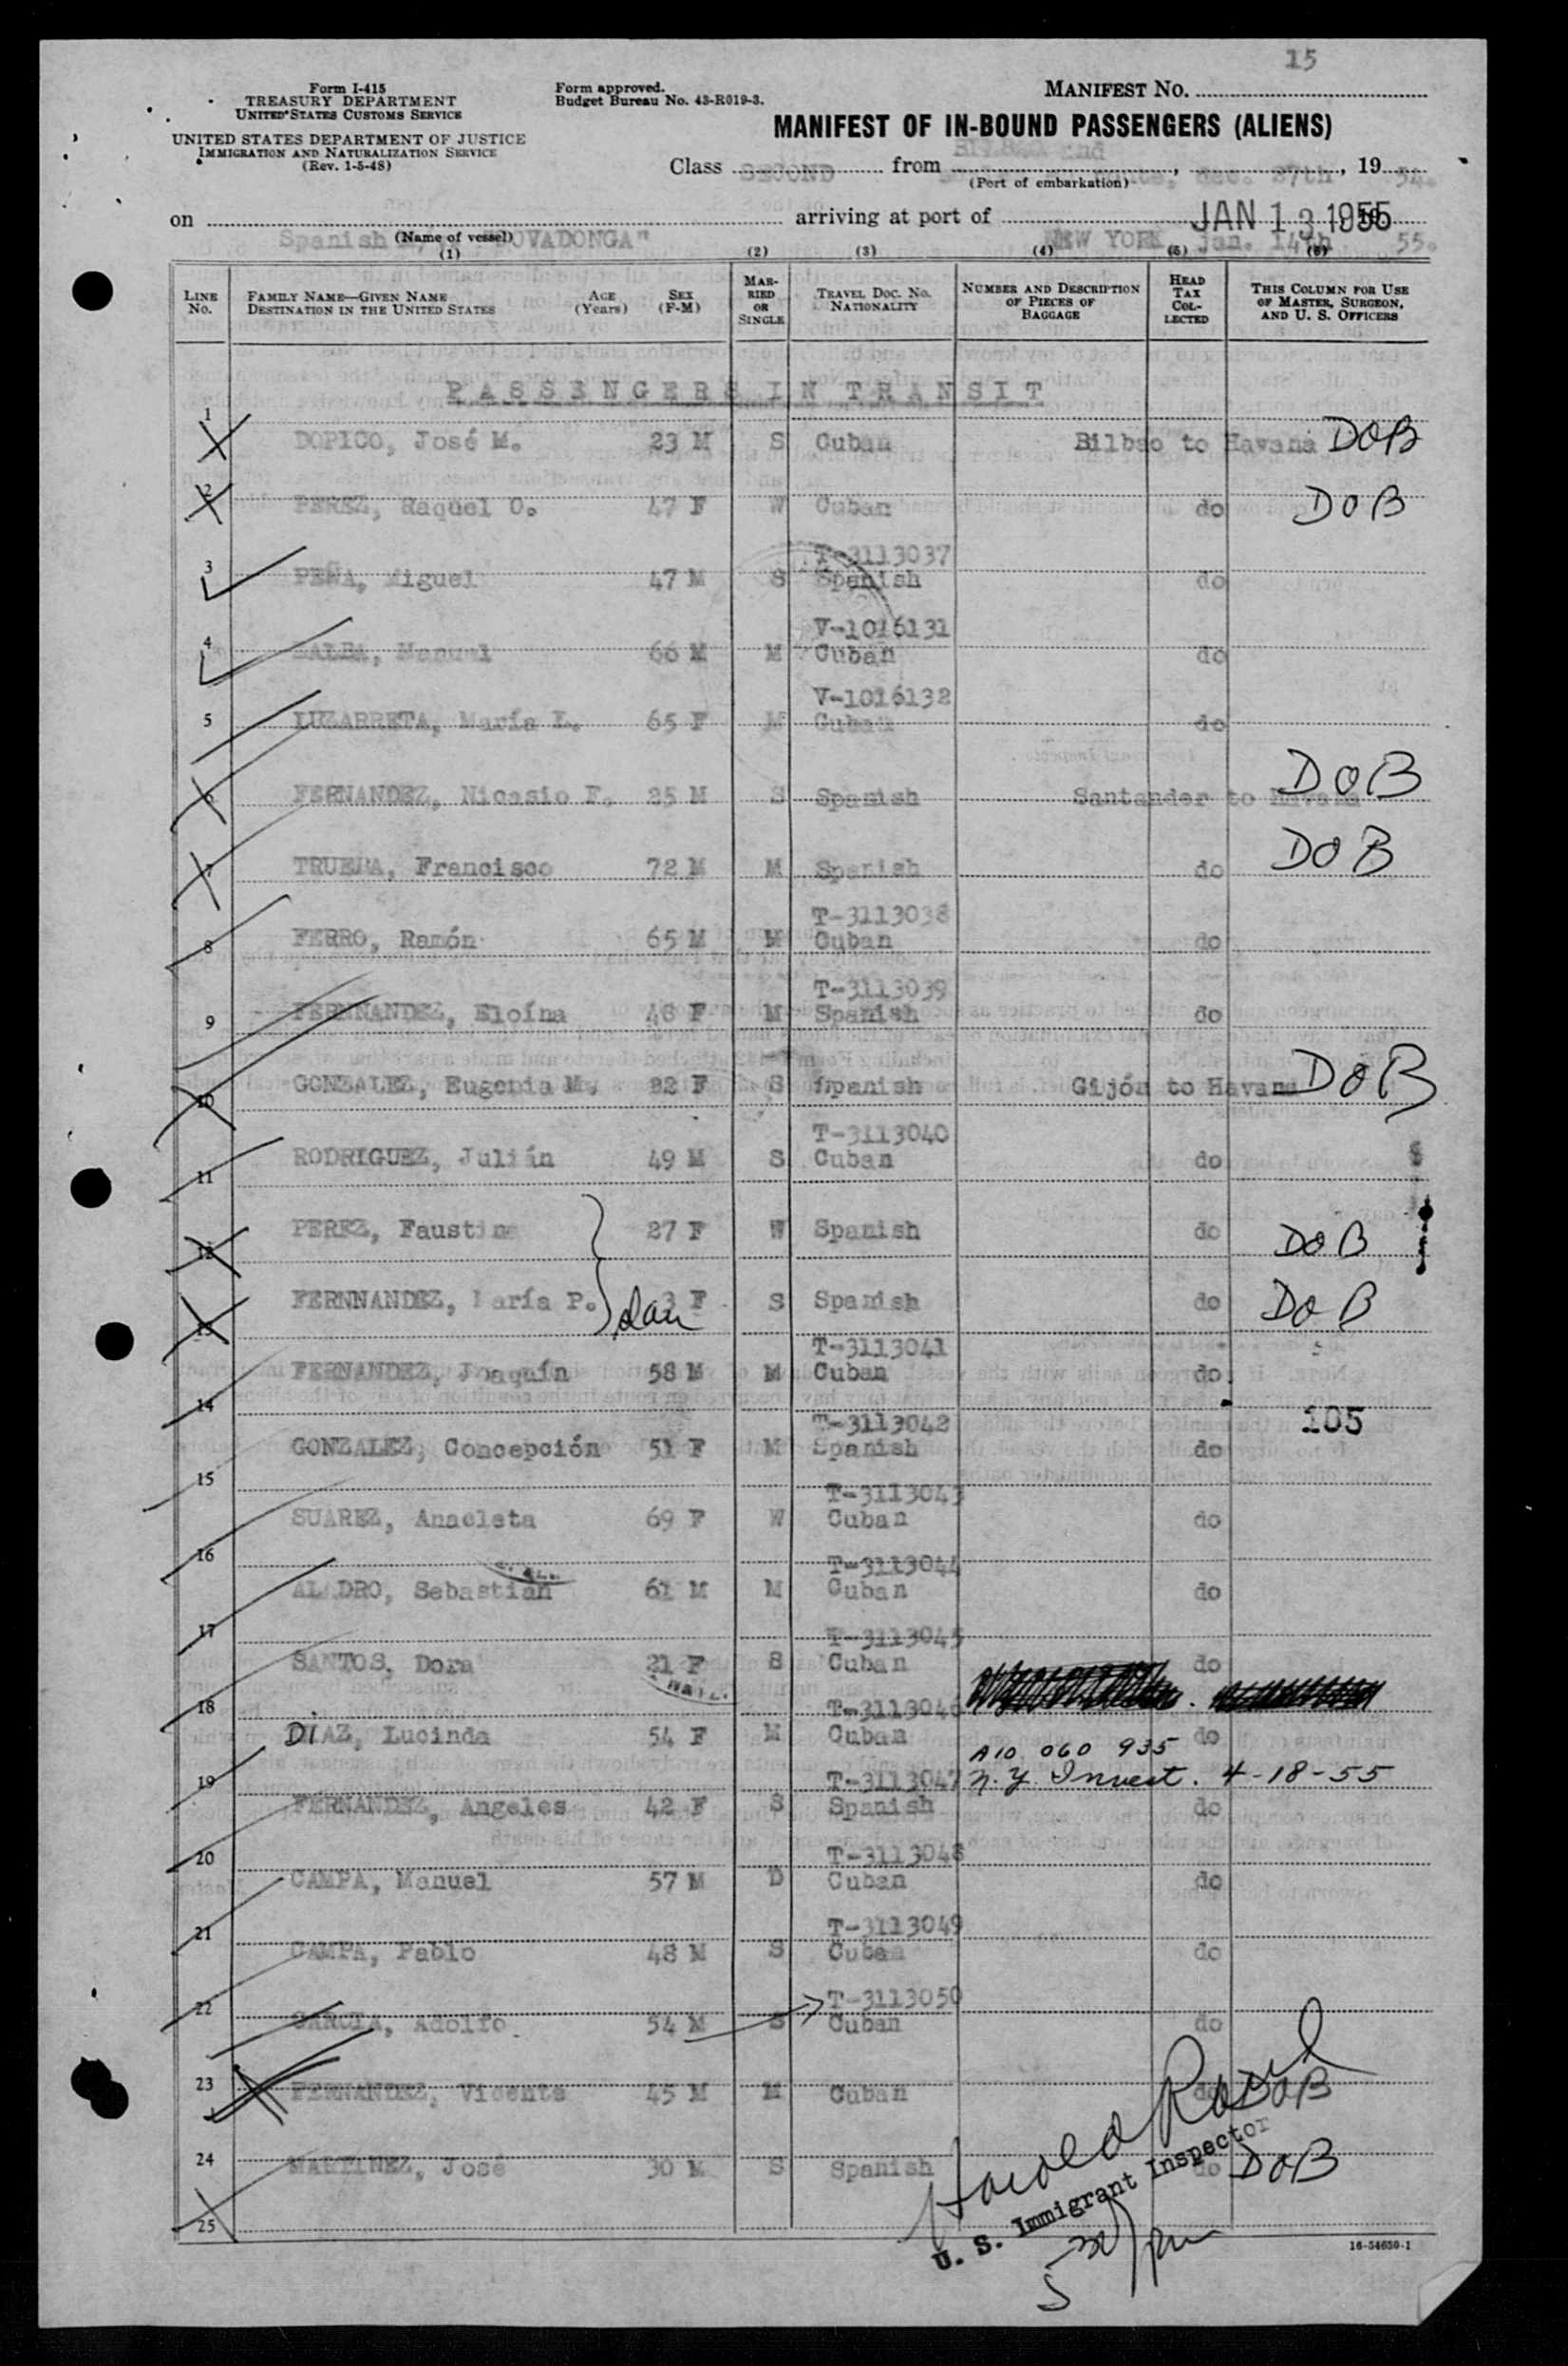 15
Form I-415
TREASURY DEPARTMENT
UNITED STATES CUSTOMS SERVICE
UNITED STATES DEPARTMENT OF JUSTICE
IMMIGRATION AND NATURALIZATION SERVICE
(Rev. 1-5-48)
Form approved.
Budget Bureau No. 43-R019-3.
MANIFEST NO.
MANIFEST OF IN-BOUND PASSENGERS (ALIENS)
Class SECOND from and , Dec. 27th, 19 54.
(Port of embarkation)
on Spanish "COVADONGA" arriving at port of NEW YORK Jan. 14th 55.
JAN 13 1955
(Name of vessel)
(1) (2) (3) (4) (5) (6)
LINE NO. FAMILY NAME—GIVEN NAME DESTINATION IN THE UNITED STATES AGE (Years) SEX (F-M) MARRIED OR SINGLE TRAVEL DOC. NO. NATIONALITY NUMBER AND DESCRIPTION OF PIECES OF BAGGAGE HEAD TAX COLLECTED THIS COLUMN FOR USE OF MASTER, SURGEON, AND U. S. OFFICERS
PASSENGERS IN TRANSIT
1 DOPICO, José M. 23 M S Cuban Bilbao to Havana DOB
2 PEREZ, Raquel O. 47 F W Cuban do DOB
T-3113037
3 PEÑA, Miguel 47 M S Spanish do
V-1016131
4 Manuel 66 M M Cuban do
V-1016132
5 LUZARRETA, María L. 65 F M Cuban do
6 FERNANDEZ, Nicasio F. 25 M S Spanish Santander to Havana DOB
7 TRUEBA, Francisco 72 M M Spanish do DOB
T-3113038
8 FERRO, Ramón 65 M M Cuban do
T-3113039
9 FERNNANDEZ, Eloína 48 F M Spanish do
10 GONZALEZ, Eugenia M. 22 F S Spanish Gijón to Havana DOB
T-3113040
11 RODRIGUEZ, Julián 49 M S Cuban do
12 PEREZ, Faustina 27 F W Spanish do DOB
13 FERNNANDEZ, María P. dau 3 F S Spanish do DOB
T-3113041
14 FERNANDEZ, Joaquín 58 M M Cuban do
105
T-3113042
15 GONZALEZ, Concepción 51 F M Spanish do
T-3113043
16 SUAREZ, Anacleta 69 F W Cuban do
T-3113044
17 ALADRO, Sebastián 61 M M Cuban do
T-3113045
18 SANTOS, Dora 21 F S Cuban do
T-3113046
19 DIAZ, Lucinda 54 F M Cuban do
A10 060 935
T-3113047 N.Y. Invest. 4-18-55
20 FERNANDEZ, Angeles 42 F S Spanish do
T-3113048
21 CAMPA, Manuel 57 M D Cuban do
T-3113049
22 CAMPA, Pablo 48 M S Cuban do
T-3113050
23 GARCIA, Adolfo 54 M S Cuban do
24 FERNANDEZ, Vicente 45 M M Cuban do DOB
25 MARTINEZ, José 30 M S Spanish do DOB
Harold
U. S. Immigrant Inspector
5 30/pm
16-54650-1